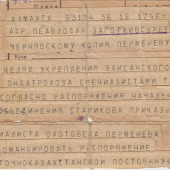 АЛМААТА 53104 36 18 1748=
АБР ПЕАВЛОДАР ЗАГОТЖИВСЫРЬЕ
ЧЕРНЯВСКОМУ КОПИЯ ПЕРМЕНЕВУ
ЦЕЛЯХ УКРЕПЛЕНИЯ ЗАЙСАНСКОГО
ОНДАТРОХОЗА СПЕЦИАЛИСТАМИ
СОГЛАСНО РАСПОРЯЖЕНИЯ НАЧАЛЬ
ОБЪЕДИНЕНИЯ СТАРИКОВА ПРИКАЗЫ
ИАЛИСТА ОХОТОВЕДА ПЕРМЕНЕВА
ОМАНДИРОВАТЬ РАСПОРЯЖЕНИЕ
ТОЧНОКАЗАХСТАНСКОЙ ПОСТОЯННУЮ